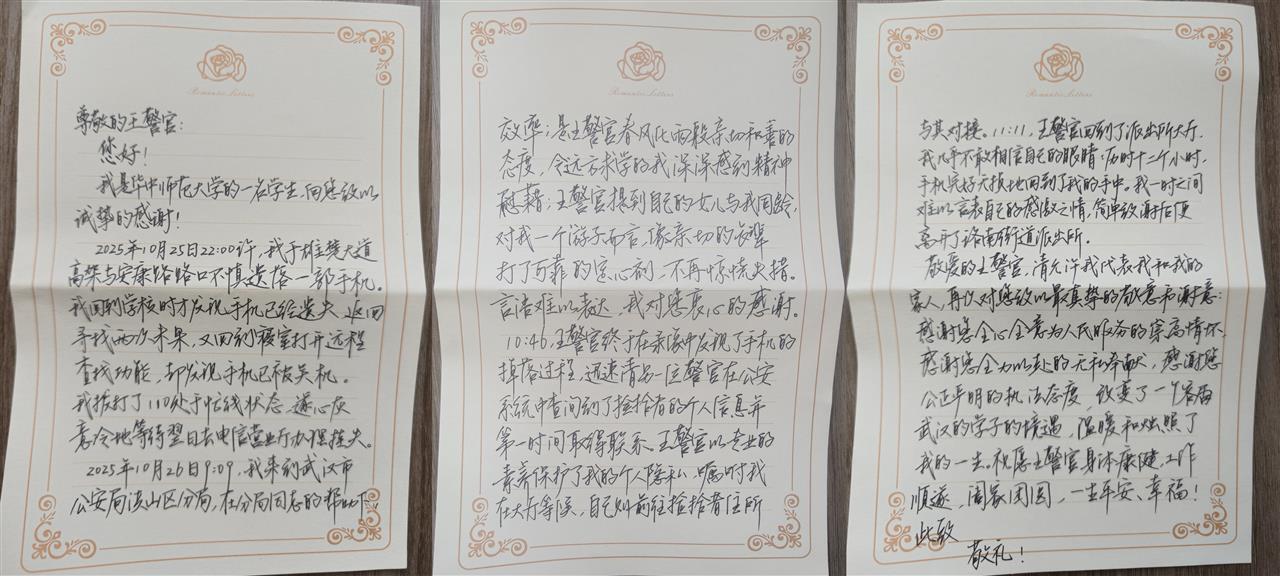 Romantic Letters
尊敬的王警官:
您好!
我是华中师范大学的一名学生,向您致以
诚挚的感谢!
2025年10月25日22:00许,我于雄楚大道
高架与安康路路口不慎遗落一部手机。
我回到学校时才发现手机已经遗失,返回
寻找两次未果,又回到寝室打开远程
查找功能,却发现手机已被关机。
我拨打了110处于忙线状态,遂心灰
意冷地等待翌日去电信营业厅办理挂失。
2025年10月26日9:09,我来到武汉市
公安局洪山区分局,在分局同志的帮助下,
Romantic Letters
效率;是王警官春风化雨般亲切和善的
态度,令远方求学的我深深感到精神
慰藉;王警官提到自己的女儿与我同龄,
对我一个游子而言,像亲切的长辈
打了万菲的定心剂,不再惊慌失措。
言语难以表达,我对您衷心的感谢。
10:46,王警官终于在录像中发现了手机的
掉落过程,迅速请另一位警官在公安
系统中查询到了捡拾者的个人信息并
第一时间取得联系。王警官以专业的
素养保护了我的个人隐私,嘱咐我
在大厅等候,自己则前往捡拾者住所
Romantic Letters
与其对接。11:11,王警官回到了派出所大厅,
我几乎不敢相信自己的眼睛:历时十二个小时,
手机完好无损地回到了我的手中。我一时之间
难以言表自己的感激之情,简单致谢后便
离开了珞南街道派出所。
敬爱的王警官,请允许我代表我和我的
家人,再次对您致以最真挚的敬意和谢意:
感谢您全心全意为人民服务的崇高情怀,
感谢您全力以赴的无私奉献,感谢您
公正平明的执法态度,改变了一个客居
武汉的学子的境遇,温暖和灿照了
我的一生。祝愿王警官身体康健,工作
顺遂,阖家团圆,一生平安、幸福!
此致
敬礼!